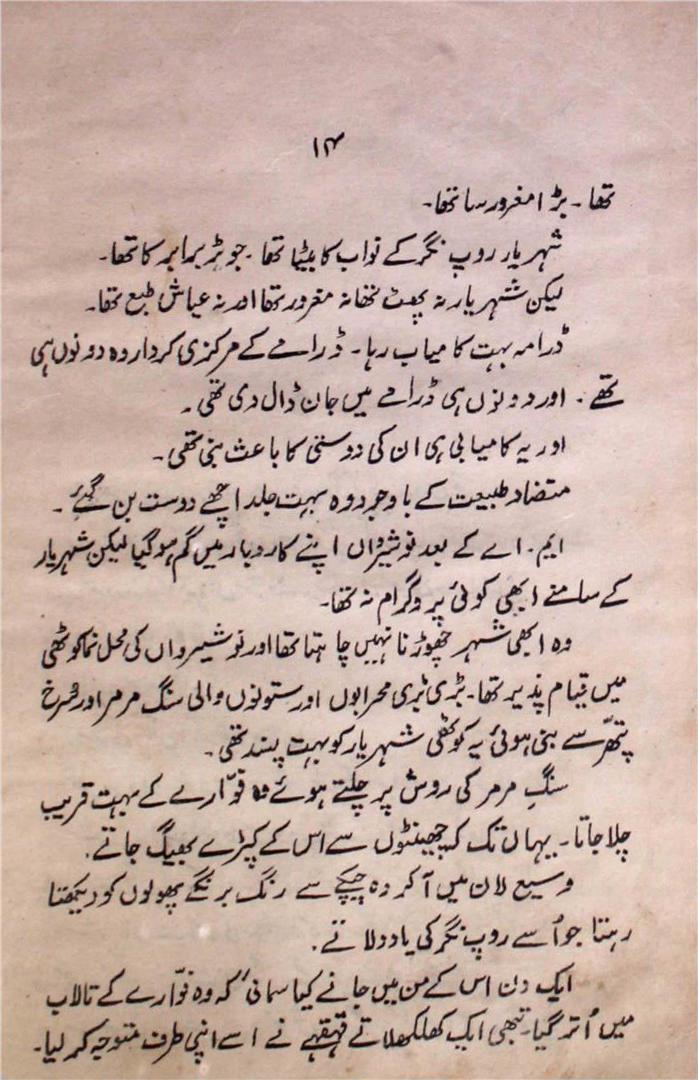 ۱۴
تھا۔ بڑا مغرور سا تھا۔
شہریار روپ نگر کے نواب کا بیٹا تھا۔ جوڑ برابر کا تھا۔
لیکن شہریار نہ پھٹ تھا نہ مغرور تھا اور نہ عیاش طبع تھا۔
ڈرامہ بہت کامیاب رہا۔ ڈرامے کے مرکزی کردار وہ دونوں ہی
تھے۔ اور دونوں ہی ڈرامے میں جان ڈال دی تھی۔
اور یہ کامیابی ہی ان کی دوستی کا باعث بنی تھی۔
متضاد طبیعت کے باوجود وہ بہت جلد اچھے دوست بن گئے۔
ایم۔ اے کے بعد نوشیرواں اپنے کاروبار میں گم ہو گیا لیکن شہریار
کے سامنے ابھی کوئی پروگرام نہ تھا۔
وہ ابھی شہر چھوڑنا نہیں چاہتا تھا اور نوشیرواں کی محل نما کوٹھی
میں قیام پذیر تھا۔ بڑی بڑی محرابوں اور ستونوں والی سنگ مرمر اور سُرخ
پتھّر سے بنی ہوئی یہ کوٹھی شہریار کو بہت پسند تھی۔
سنگِ مرمر کی روش پر چلتے ہوئے وہ فوّارے کے بہت قریب
چلا جاتا۔ یہاں تک کہ چھینٹوں سے اس کے کپڑے بھیگ جاتے۔
وسیع لان میں آ کر وہ چپکے سے رنگ برنگے پھولوں کو دیکھتا
رہتا جو اُسے روپ نگر کی یاد دلاتے۔
ایک دن اس کے من میں جانے کیا سمائی کہ وہ فوّارے کے تالاب
میں اُتر گیا۔ تبھی ایک کھلکھلاتے قہقہے نے اسے اپنی طرف متوجہ کر لیا۔